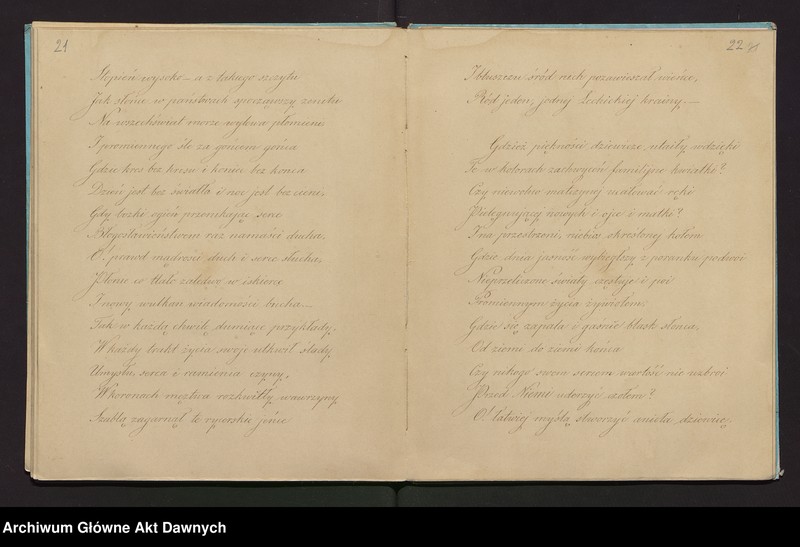 21
Stopień wysoko — a z takiego szczytu
Jak słońce w państwach
Na wszechświat morze wylewa płomieni
I promiennego śle za gońcem gońca
Gdzie kres bez kresu i koniec bez końca
Dzień jest bez światła i noc jest bez cieni.
Gdy boski ojciec przenikając serc
Błogosławieństwem raz namaści ducha,
O! prawd mądrości duch i serce słucha,
Płonie co tlało zaledwo w iskierce
I nowy wulkan wiadomości bucha —
Tak w każdą chwilę dumnie przykłady,
W każdy trakt życia swoje utkwił ślady
Umysłu, serca i ramienia czyny,
W koronach męztwa rozkwitły wawrzyny
Szablą zagarnął te rycerskie
22
I bluszczu śród nich pozawieszał wieńce,
Ród jeden, jednej Lechickiej krainy. —
Gdzież piękności dziewicze utaiły wdzięki
To w kolorach zachwyceń familijne kwiatki?
Czy niewolno malczynej malować ręki
Pielęgnującej nowych i ojca i matki?
I na przestrzeni, niebios okreslonej kołem
Gdzie dnia jasność wybiegłszy z poranku podwoi
Nieprzeliczone światy częstuje i poi
Promiennym życia żywiołem,
Gdzie się zapala i gasnie blask słońca,
Od ziemi do ziemi końca
Czy nikogo swem sercem wartość nie uzbroi
Przed Niemi uderzyć czołem?
O! łatwiej myślą stworzyć anioła dziewicę,
Archiwum Główne Akt Dawnych